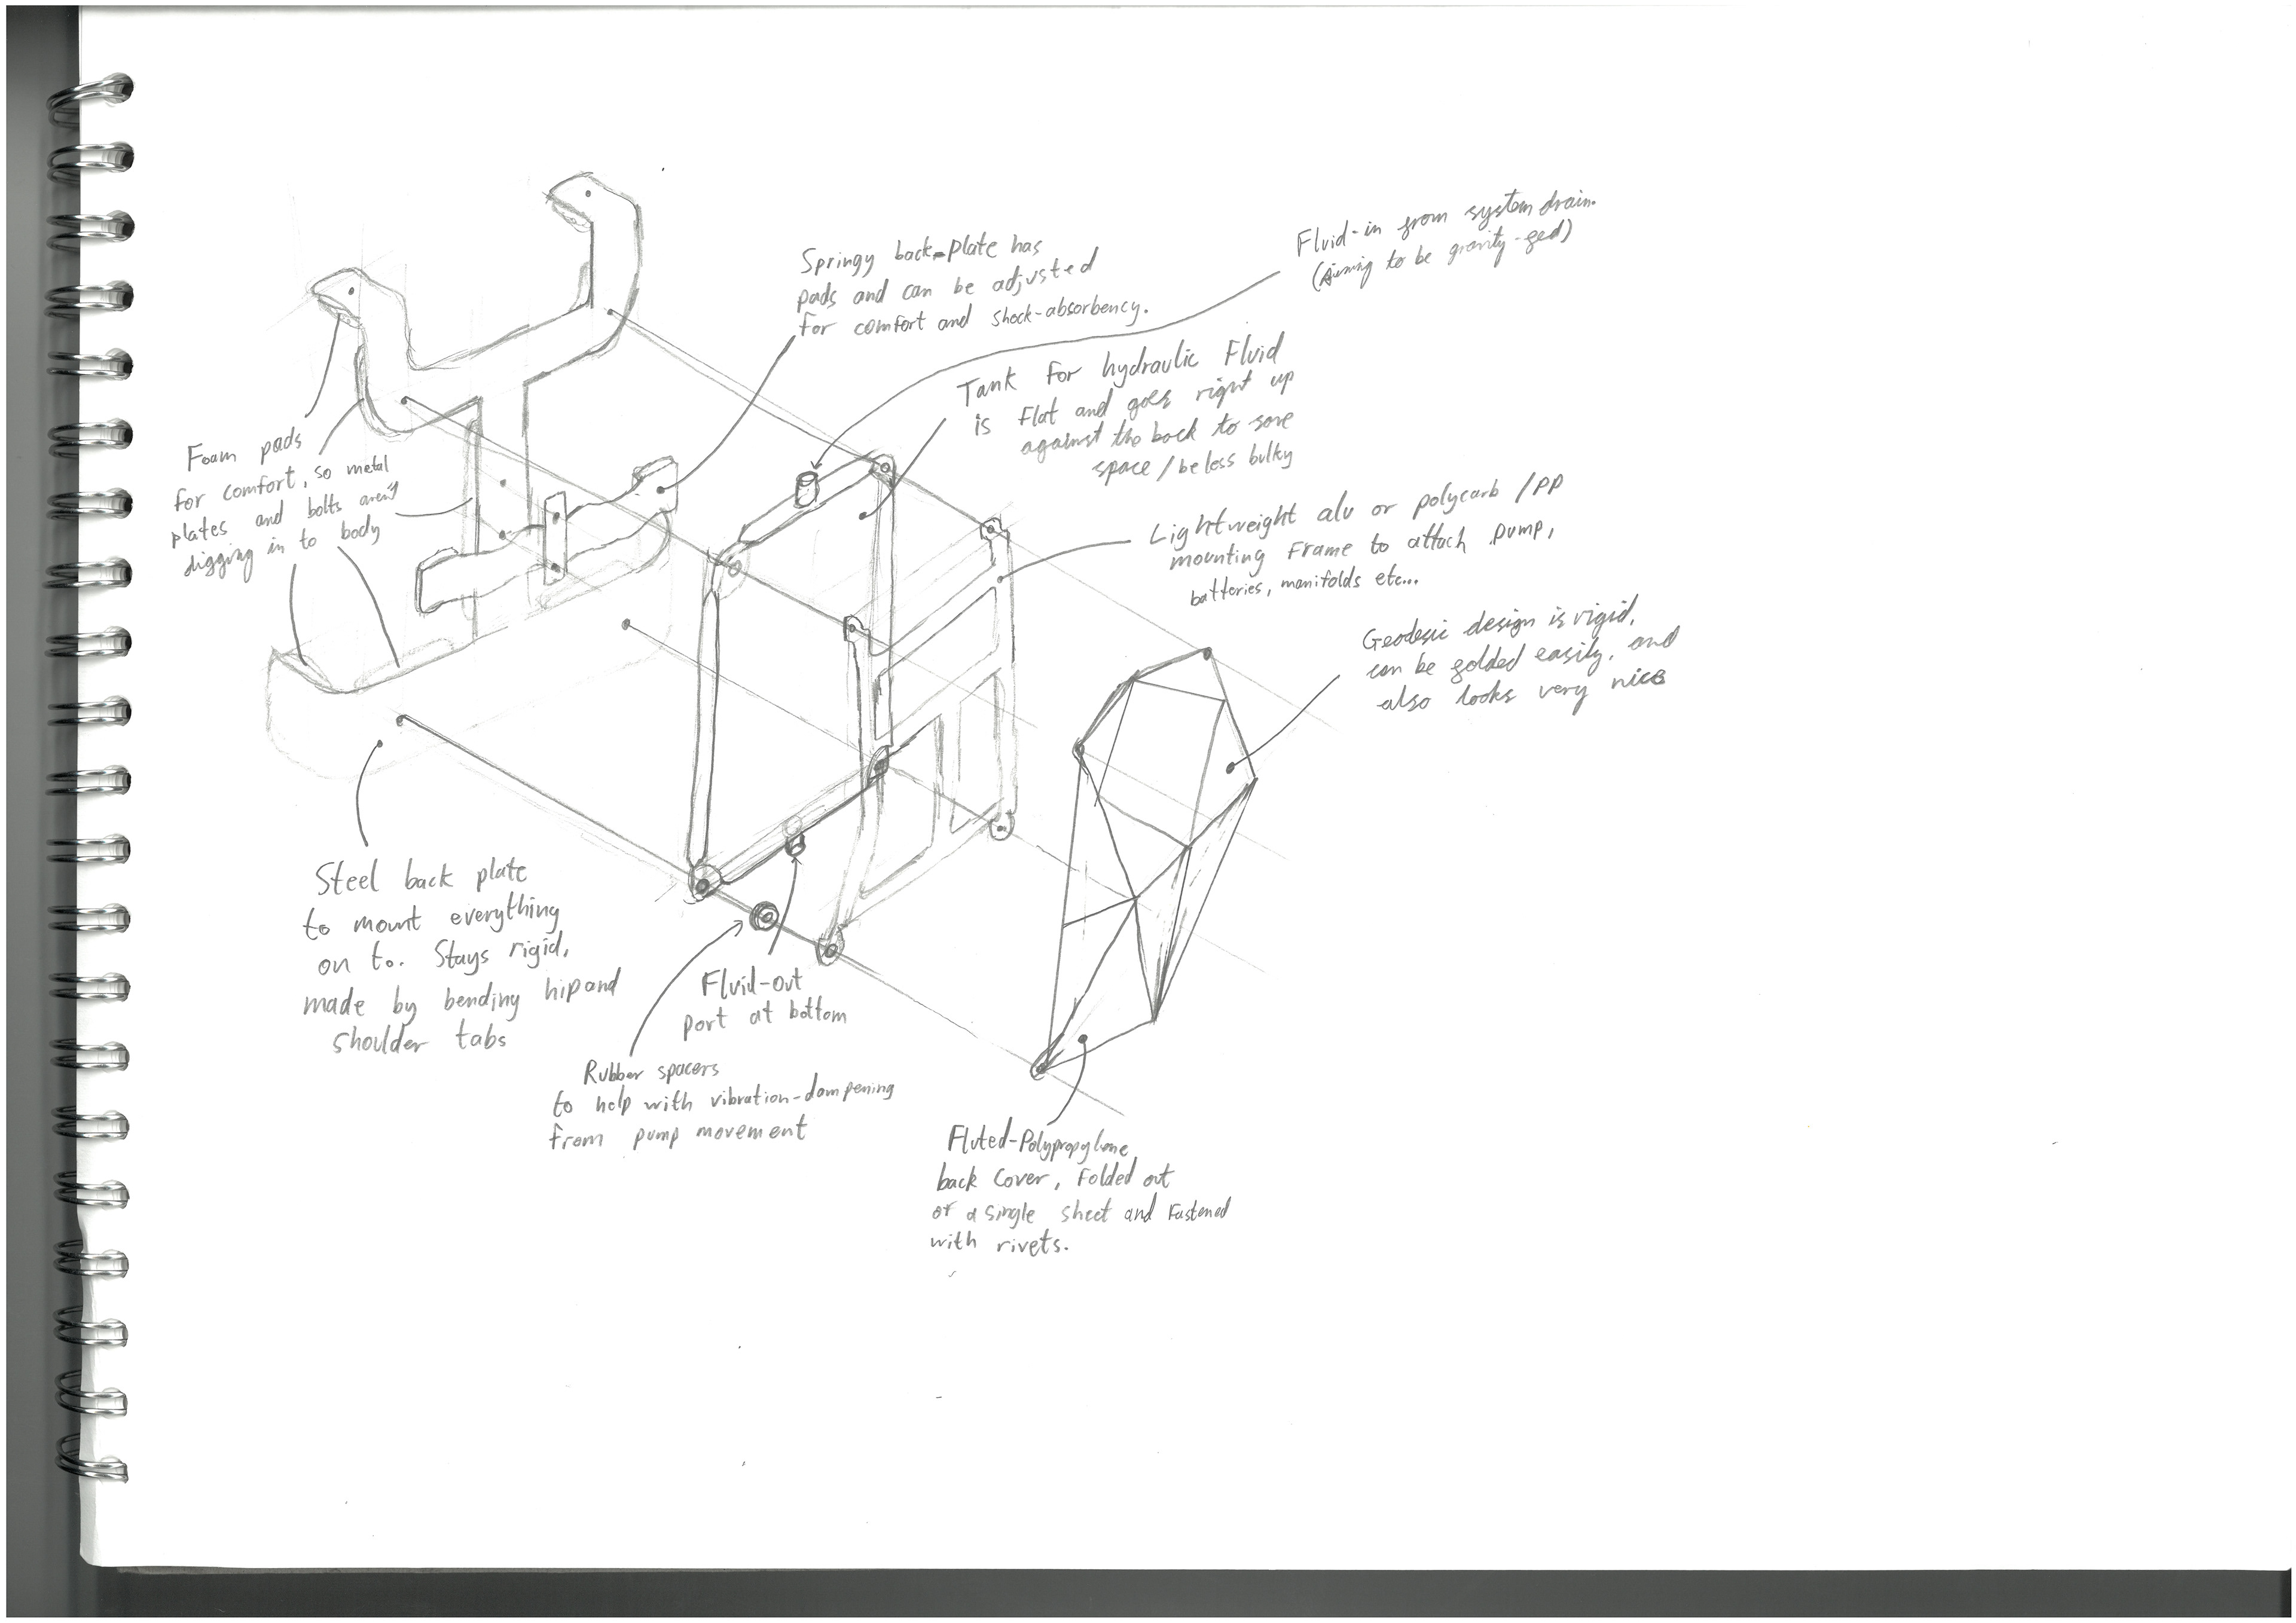 Springy back-plate has
pads and can be adjusted
for comfort and shock-absorbency.
Fluid-in from system drain.
(Aiming to be gravity-fed)
Tank for hydraulic Fluid
is Flat and goes right up
against the back to save
space / be less bulky
Foam pads
for comfort, so metal
plates and bolts aren't
digging in to body
Lightweight alu or polycarb / PP
mounting Frame to attach pump,
batteries, manifolds etc...
Geodesic design is rigid,
can be folded easily, and
also looks very nice
Steel back plate
to mount everything
on to. Stays rigid,
made by bending hip and
shoulder tabs
Fluid-out
port at bottom
Rubber spacers
to help with vibration-dampening
from pump movement
Fluted-Polypropylene
back cover, Folded out
of a single sheet and Fastened
with rivets.